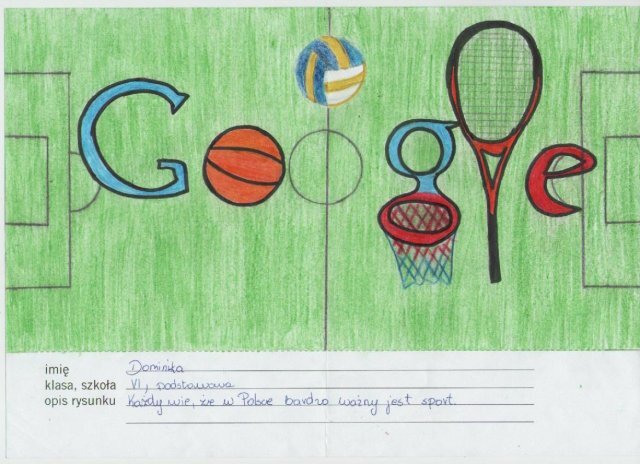 Google
imię Dominika
klasa, szkoła VI, podstawowa
opis rysunku Każdy wie, że w Polsce bardzo ważny jest sport.